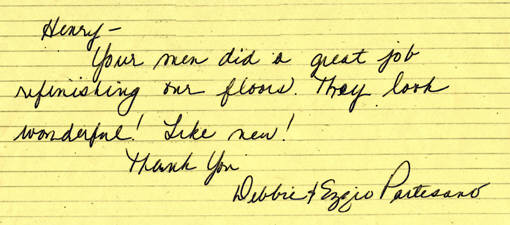 Henry-
Your men did a great job
refinishing our floors. They look
wonderful! Like new!
Thank You
Debbie & Ezzio Partesano